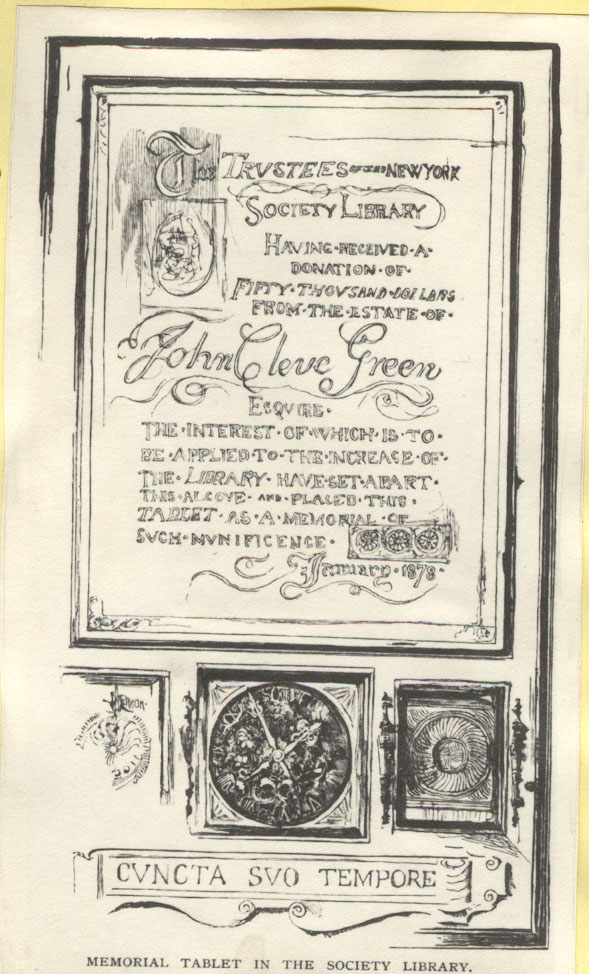 The TRVSTEES OF THE NEW YORK
SOCIETY LIBRARY
HAVING·RECEIVED·A·
DONATION·OF·
FIFTY·THOVSAND·DOLLARS
FROM·THE·ESTATE·OF·
John Cleve Green
ESQVIRE·
THE·INTEREST·OF·WHICH·IS·TO·
BE·APPLIED·TO·THE·INCREASE·OF·
THE·LIBRARY·HAVE·SET·APART·
THIS·ALCOVE·AND·PLACED·THIS·
TABLET·AS·A·MEMORIAL·OF
SVCH·MVNIFICENCE·
January·1878·
CVNCTA SVO TEMPORE
MEMORIAL TABLET IN THE SOCIETY LIBRARY.